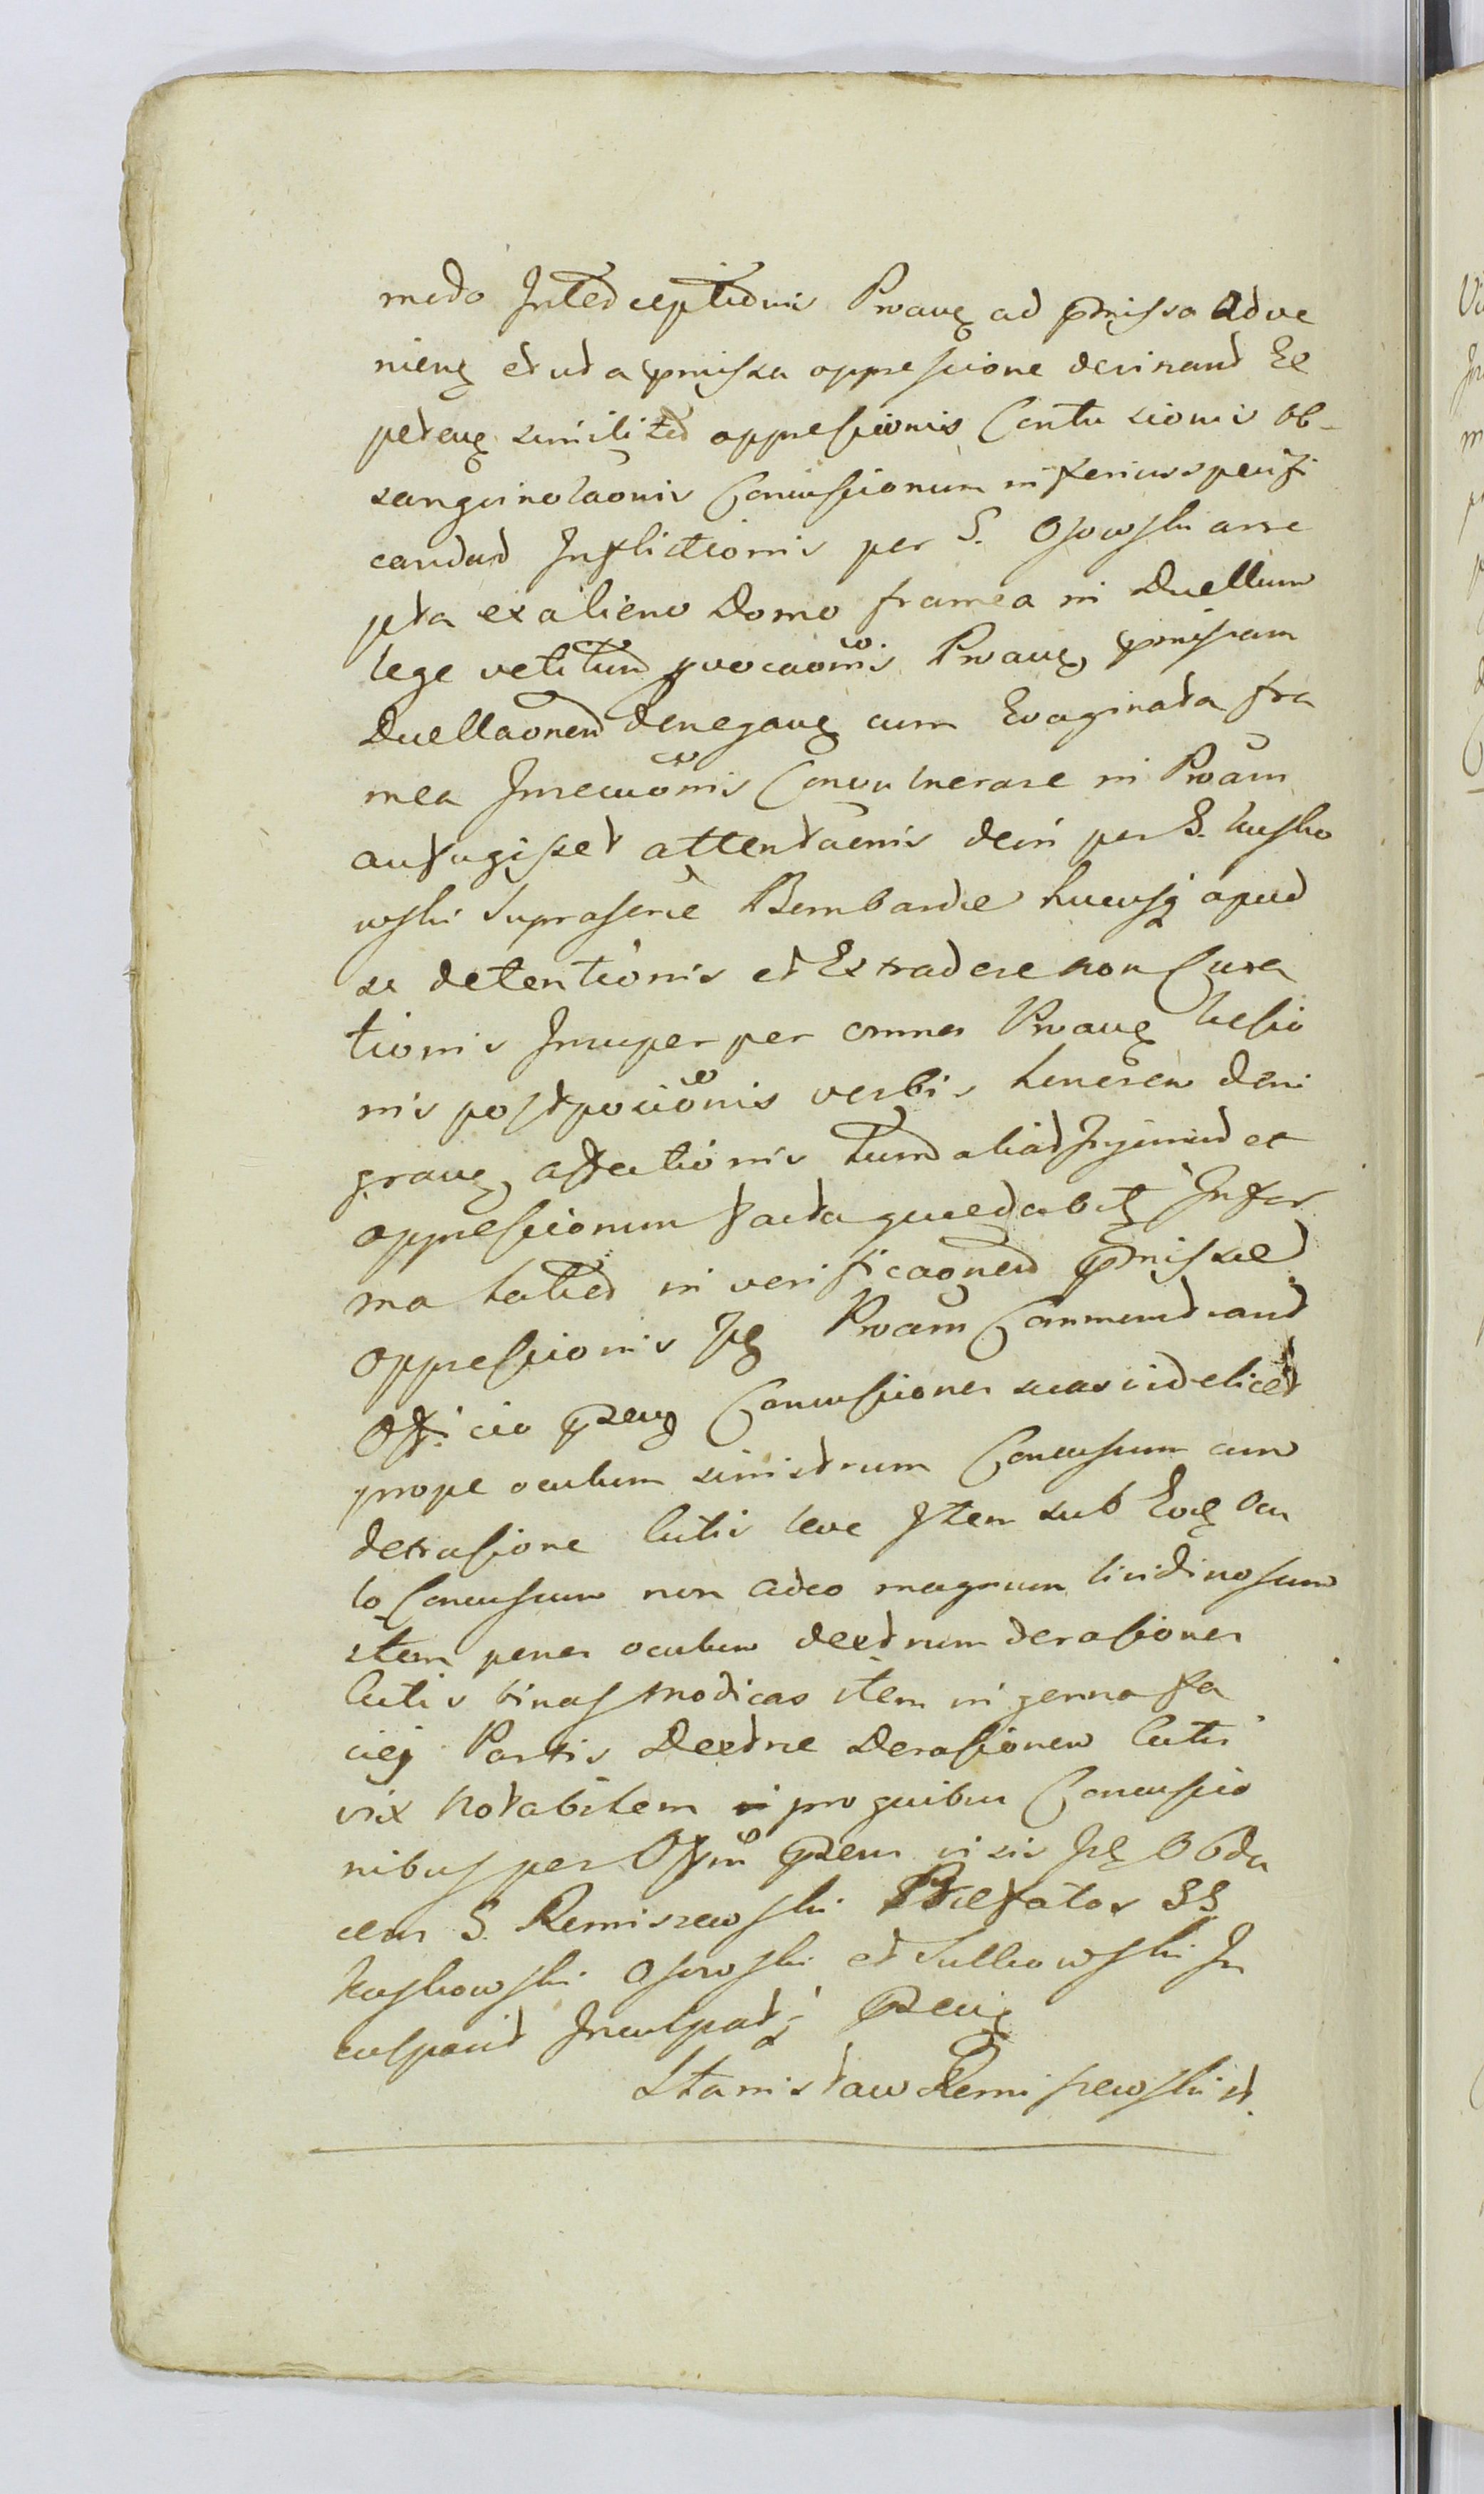 modo Interceptionis Proaug ad pmissa adve
nieng et ut a pmissa oppressione desinant Ee
peteng similiter oppressionis Contu sionis ob-
sanguinolaonis Concussionum inferius specifi
candad Inflictionis per S. Osowski arre
pta ex alieno Domo framea in Duellum
lege vetitum pvocaonis Proaug pmissam
Duellaonem denegang cum Evaginata fra
mea Insecuonis Convulnerare in Proam
aufugisset attentaonis dein per S. Kusko
wski Supraserie Bombardae hucusq apud
se detentionis et Extradere non Cura
tionis Insuper per omnes Proaug Lesio
nis postposiionis verbis honorem deni
grang affectionis tum aliad Injuriad et
oppressionum facta queedabit Infor
ma latied in verificaonem pmissae
oppressionis Ps Proam Commendrand
Officio pzeng Concussiones suas videlicet
prope oculum sinistrum Concussum cum
detrasione Cutis leve Item sub Eoq ocu
lo Concussum non adeo magnum lividinosum
item penes oculum dextrum derasiones
Cutis binas modicas item in genna fa
ciej Partis Dextrae Derasionem Cutis
vix notabilem pro quibus Concussio
nibus per Offm pzens visis Ps Obdu
cens S. Remiszewski Praefatos SS
Kuskowski Osowski et Sulkowski In
culpavit Inculpatq pzeng
Stanisław Remiszewski st.